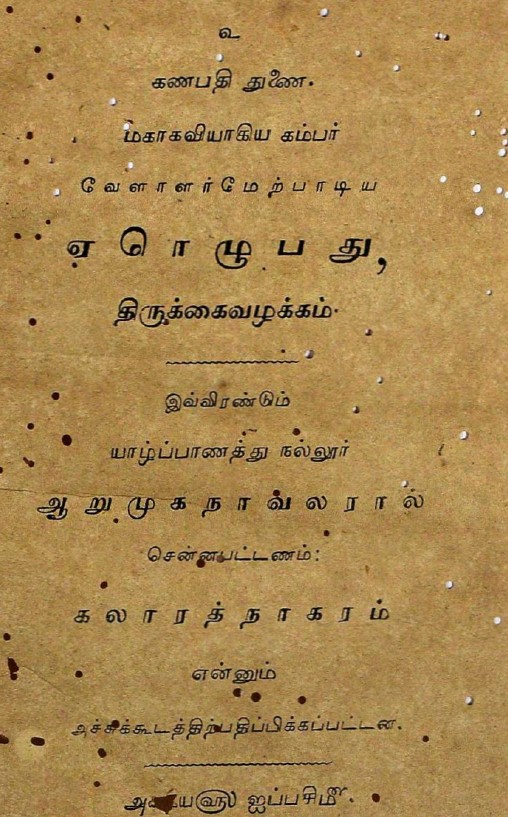 உ
கணபதி துணை.
மகாகவியாகிய கம்பர்
வேளாளர்மேற்பாடிய
ஏரெழுபது,
திருக்கைவழக்கம்.
இவ்விரண்டும்
யாழ்ப்பாணத்து நல்லூர்
ஆறுமுகநாவலரால்
சென்னபட்டணம்:
கலாரத்நாகரம்
என்னும்
அச்சுக்கூடத்திற்பதிப்பிக்கப்பட்டன.
ஐப்பசி௴.